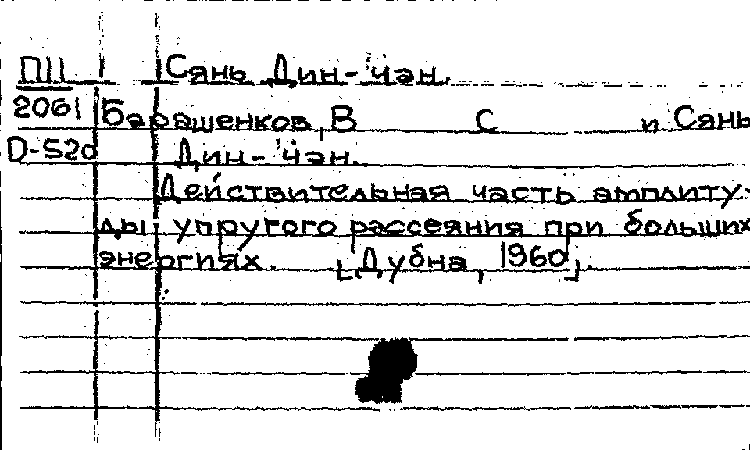 П11 Сянь Дин-чан.
2061 Барашенков, В С и Сянь
D-520 Дин-чан.
Действительная часть амплиту-
ды упругого рассеяния при больших
энергиях. [Дубна, 1960].